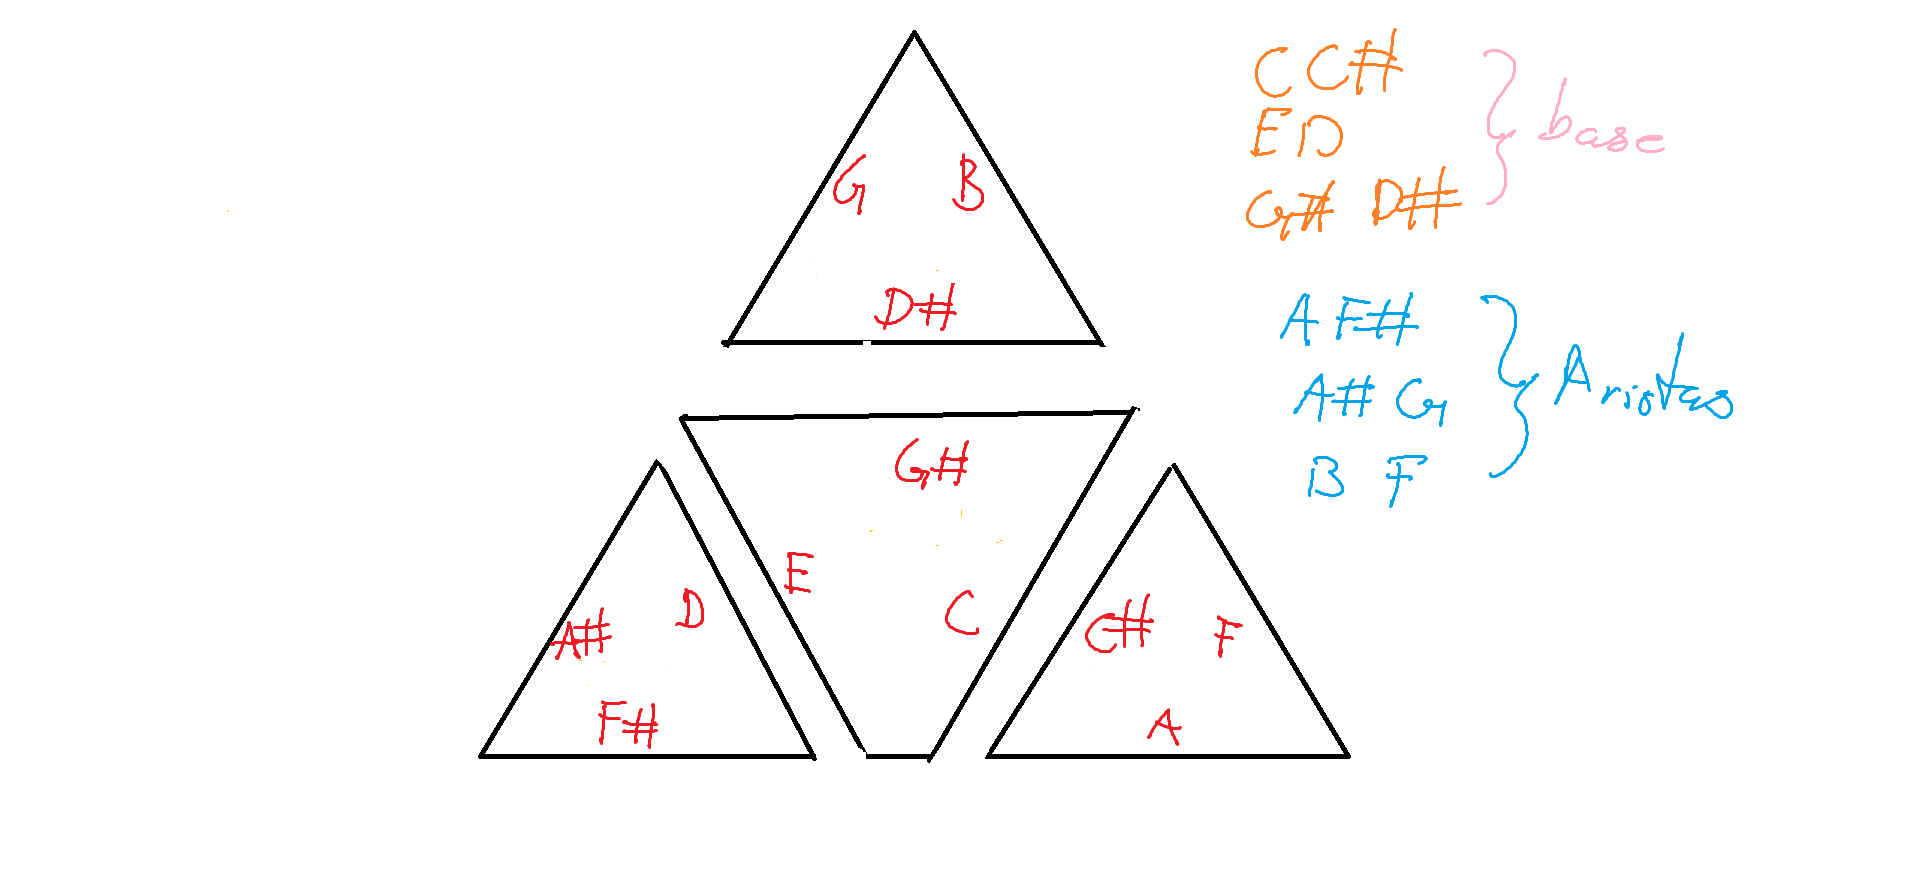 G B
D#
G#
E
C
A# D
F#
C# F
A
C C#
E D
G# D#
base
A F#
A# G
B F
Aristas